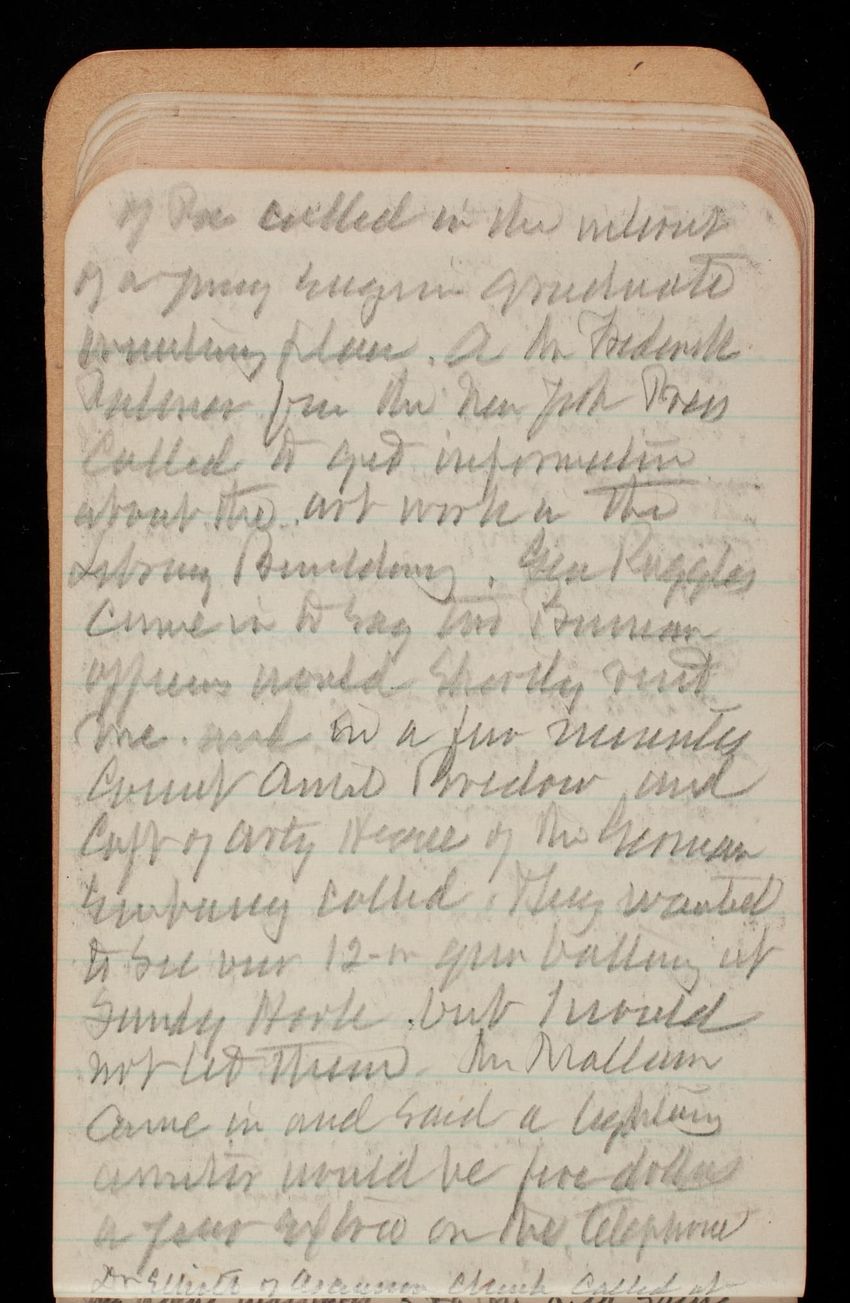 of Pa called in the interest
of a young Engrin graduate
wanting place. A Mr Frederick
from the New York Press
Called to get information
about the art work in the
Library Building. Gen Ruggles
Came in to say two German
officers would shortly visit
me. and in a few minutes
Count Bredow and
Capt of Arty of the German
Embassy called. They wanted
to see our 12-in gun battery at
Sandy Hook but I would
not let them. Mr
Came in and said a lightning
arrester would be five dollars
a year extra on the telephone
Dr Elliott of Ascension Church called at